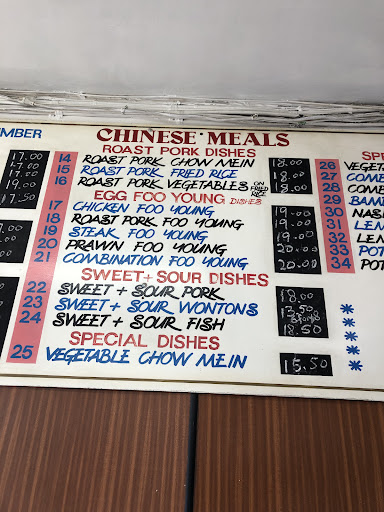 UMBER
CHINESE MEALS
ROAST PORK DISHES
17.00 14 ROAST PORK CHOW MEIN 18.00
17.00 15 ROAST PORK FRIED RICE 18.00
17.00 16 ROAST PORK VEGETABLES ON FRIED RICE 18.00
19.00
17.50
EGG FOO YOUNG DISHES
17 CHICKEN FOO YOUNG 19.00
18 ROAST PORK FOO YOUNG 19.00
19 STEAK FOO YOUNG 19.00
20 PRAWN FOO YOUNG 20.00
21 COMBINATION FOO YOUNG 20.00
SWEET + SOUR DISHES
22 SWEET + SOUR PORK 18.00
23 SWEET + SOUR WONTONS 13.50
24 SWEET + SOUR FISH 18.50
SPECIAL DISHES
25 VEGETABLE CHOW MEIN 15.50
SPE
26 VEGET
27 COME
28 COM
29 BAM
30 NAS
31 LEN
32 LEN
33 POT
34 POT